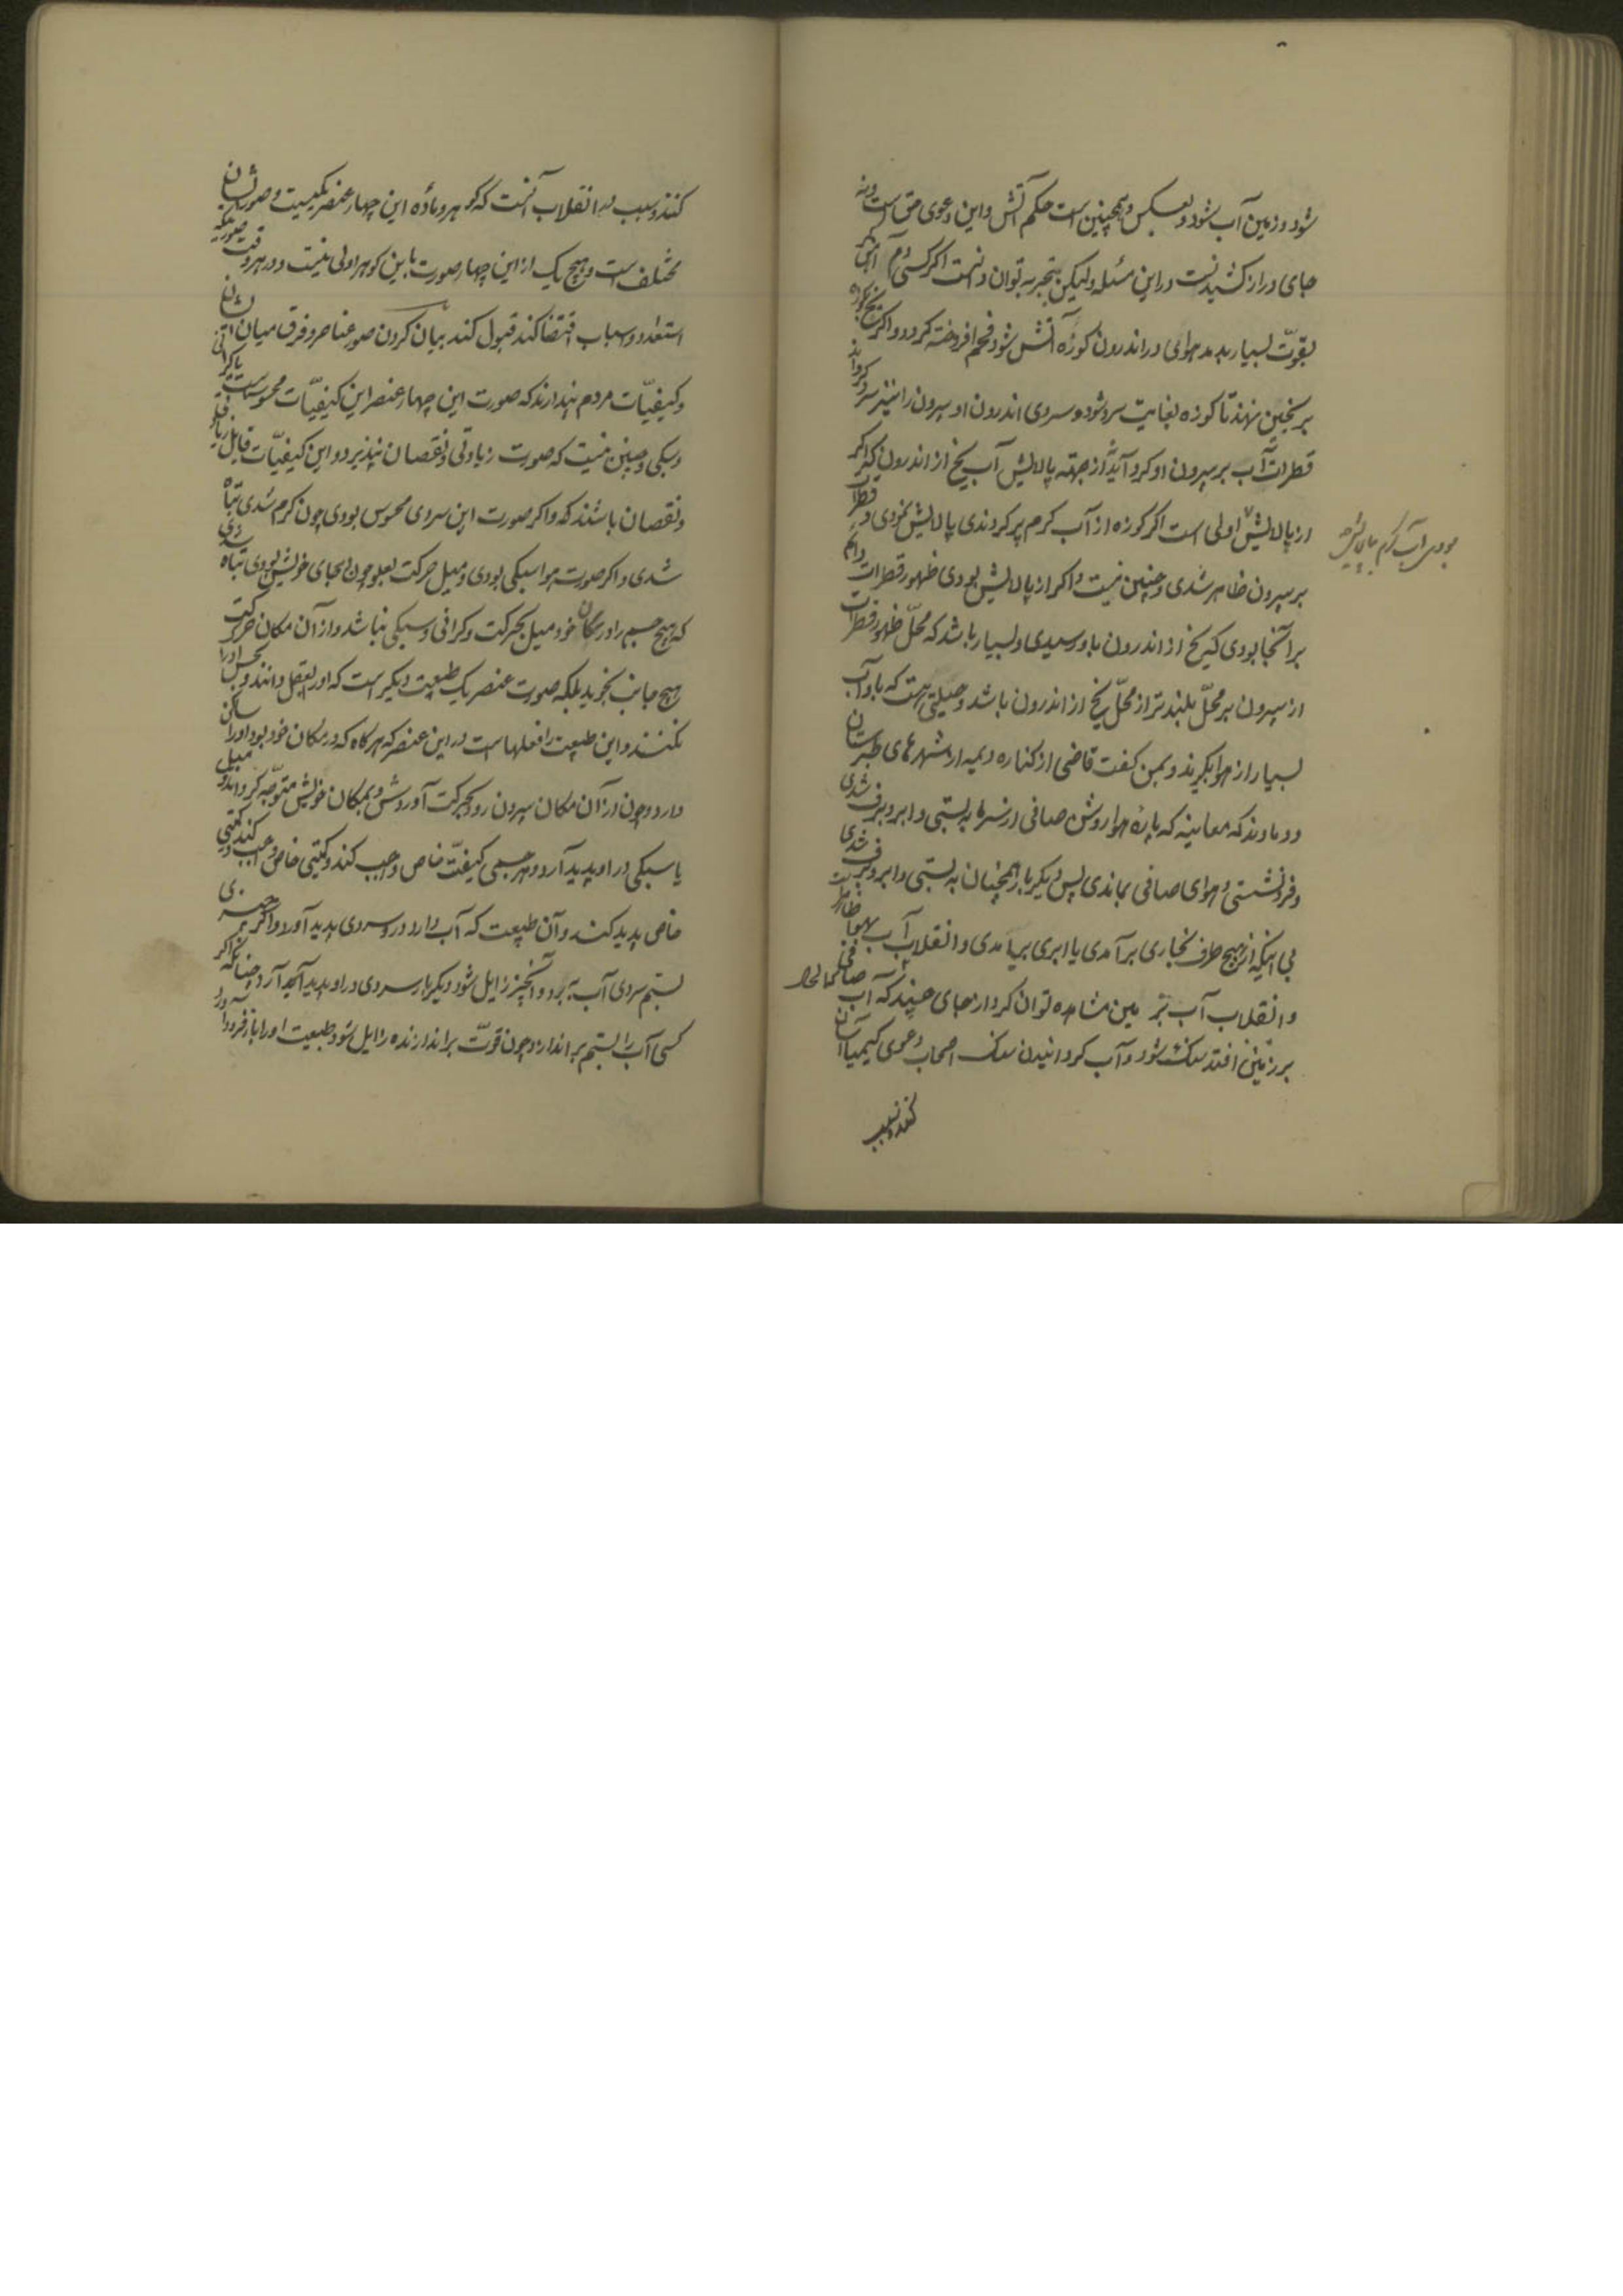 شود و زمین آب شود و بعکس و همچنین است حکم آتش و این دعوی حق است و نه
جای دراز کشیدنست در این مسئله ولیکن بتجربه توان دانست اگر کسی دم
بقوت بسیار بدمد هوای در اندرون کوزه آتش شود و فحم افروخته گردد و اگر
بر یخچین نهند تا کوزه بغایت سرد شود و سردی اندرون او بیرون را نیز سرد گرداند
قطرات آب بر بیرون او گرد آید نه از جهة پالایش آب یخ از اندرون که اگر
از پالایش اولی است اگر کوزه از آب گرم پر کردندی پالایش نمودی و قطرات
بودی آب گرم بپالایش
بر بیرون ظاهر شدی و چنین نیست و اگر از پالایش بودی ظهور قطرات دایم
بر آنجا بودی که یخ از اندرون باو رسیدی و بسیار باشد که محل ظهور قطرات
از بیرون بر محل بلندتر از محل یخ از اندرون باشد و حیلتی هست که باو آب
بسیار از هوا بگیرند و بمن گفت قاضی از کناره دیمه از شهرهای طبرستان
و دماوند که معاینه که پاره هوا روشن صافی از سرما به بستی و ابر و برف شدی
و فرو نشستی و هوای صافی بماندی پس دیگر بار همچنان به بستی و ابر و برف شدی
بی آنکه از هیچ طرف بخاری برآمدی یا ابری بیامدی و انقلاب آب بهوا ظاهر است
و انقلاب آب بزمین مشاهده توان کرد از جای چند که آب صافی
بر زمین افتد سنگ شود و آب گردانیدن سنگ اصحاب دعوی کیمیا آسان
کنند و سبب
کنند و سبب این انقلاب آنست که گوهر و ماده این چهار عنصر یکیست و صورتشان
مختلف است و هیچ یک از این چهار صورت باین گوهر اولی نیست و در هر وقت صورتی که
استعداد و اسباب اقتضا کند قبول کند بیان کردن صور عناصر و فرق میان ایشان
و کیفیّات مردم پندارند که صورت این چهار عنصر این کیفیّات محسوس است یا گرانی
و سبکی و چنین نیست که صورت زیادتی و نقصان نپذیرد و این کیفیّات قابل زیادتی
و نقصان باشند که و اگر صورت این سردی محسوس بودی چون گرم شدی تباه
شدی و اگر صورت هوا سبکی بودی و میل حرکت بعلو چون بجای خویش بودی تباه شدی
که هیچ جسم را در مکان خود میل بحرکت و گرانی و سبکی نباشد و از آن مکان حرکت
بهیچ جانب نجوید بلکه صورت عنصر یک طبیعت دیگر است که او را بعقل دانند و بحس او را
نکنند و این طبیعت را فعلهاست در این عنصر که هر گاه که در مکان خود بود او را ساکن
دارد و چون از آن مکان بیرون رود بحرکت آوردش و بمکان خویش متوجّه گرداند و میل
یا سبکی در او پدید آرد و هر جسمی کیفیّت خاص واجب کند و کمّیتی خاص واجب کند
خاص پدید کند و آن طبیعت که آب دارد در او سردی پدید آورد و اگر چیزی
بستم سردی آب ببرد و آنچیز زایل شود دیگر بار سردی در او پدید آرد چنانکه اگر
کسی آب را بستم بر اندازد چون قوّت بر اندازنده زایل شود طبیعت او را باز فرود آورد